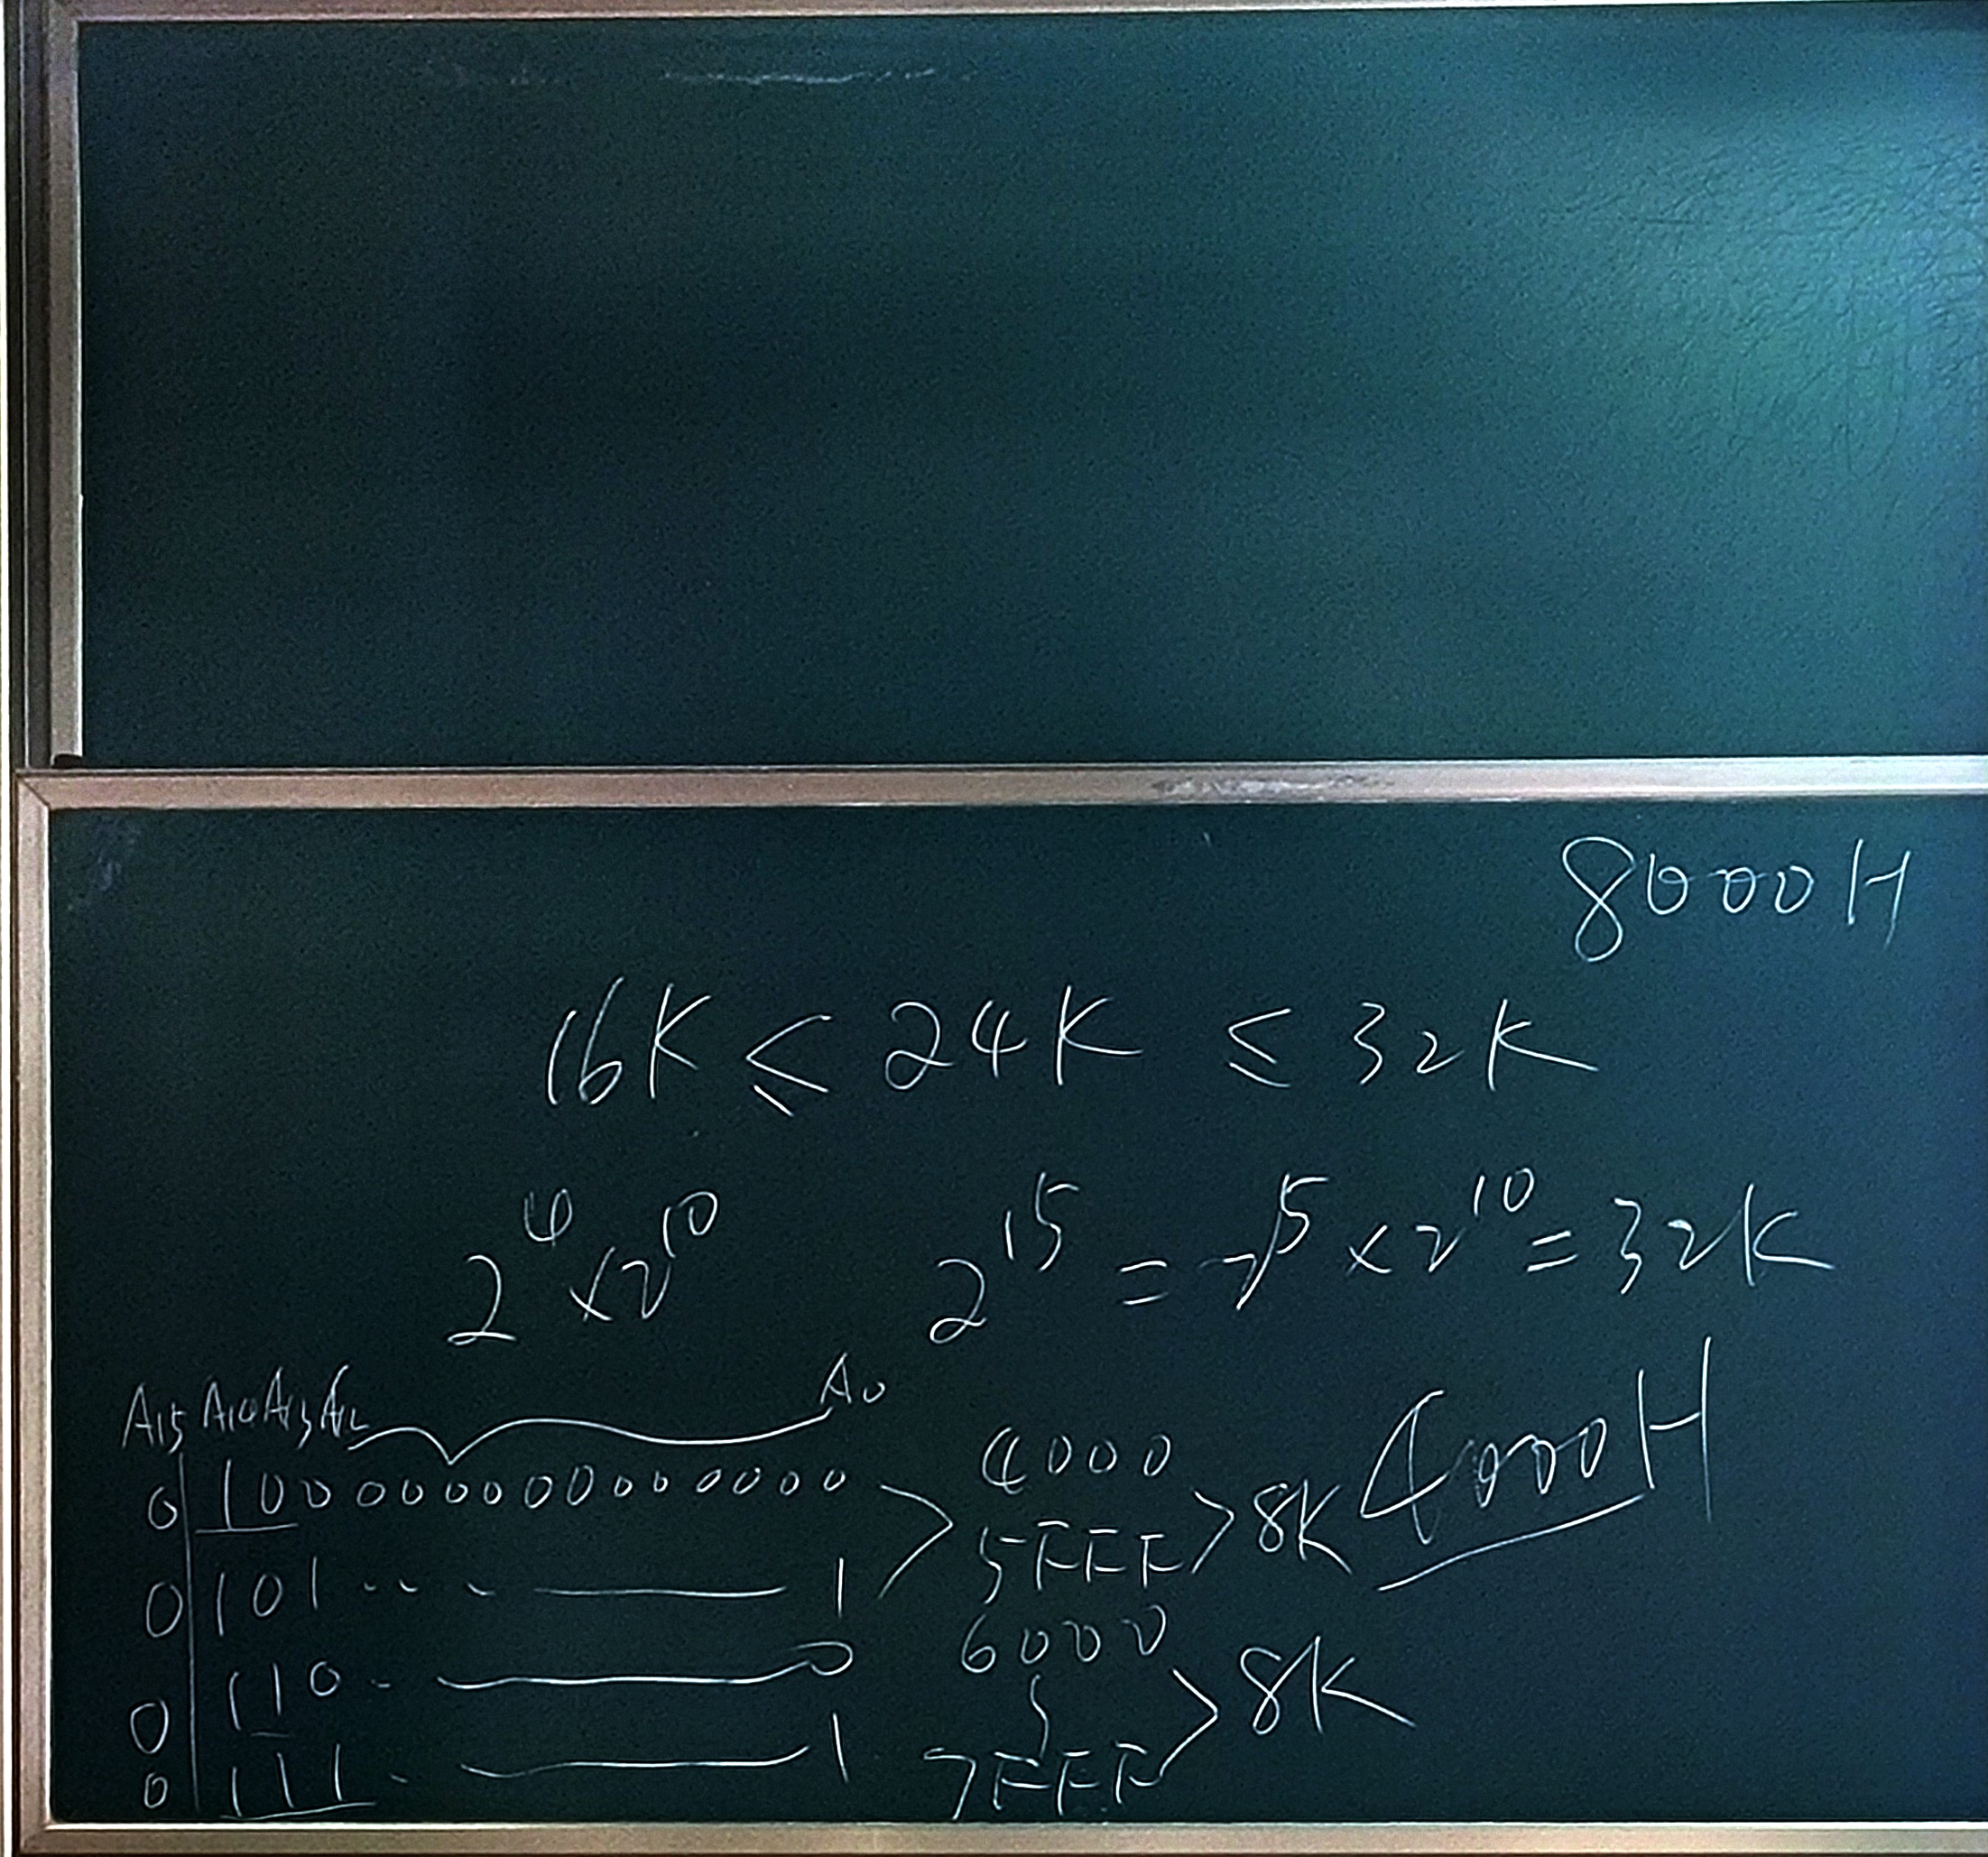 8000H
16K ≤ 24K ≤ 32K
2⁴×2¹⁰ 2¹⁵ = 2⁵×2¹⁰ = 32K
A15 A14 A13 A12 A0
0 1 0 0 0 0 0 0 0 0 0 0 0 0 0 0 4000
4000H
5FFF 8K
0 1 0 1 ... 1
6000
0 1 1 0 . 0
8K
0 1 1 1 . 1 7FFF